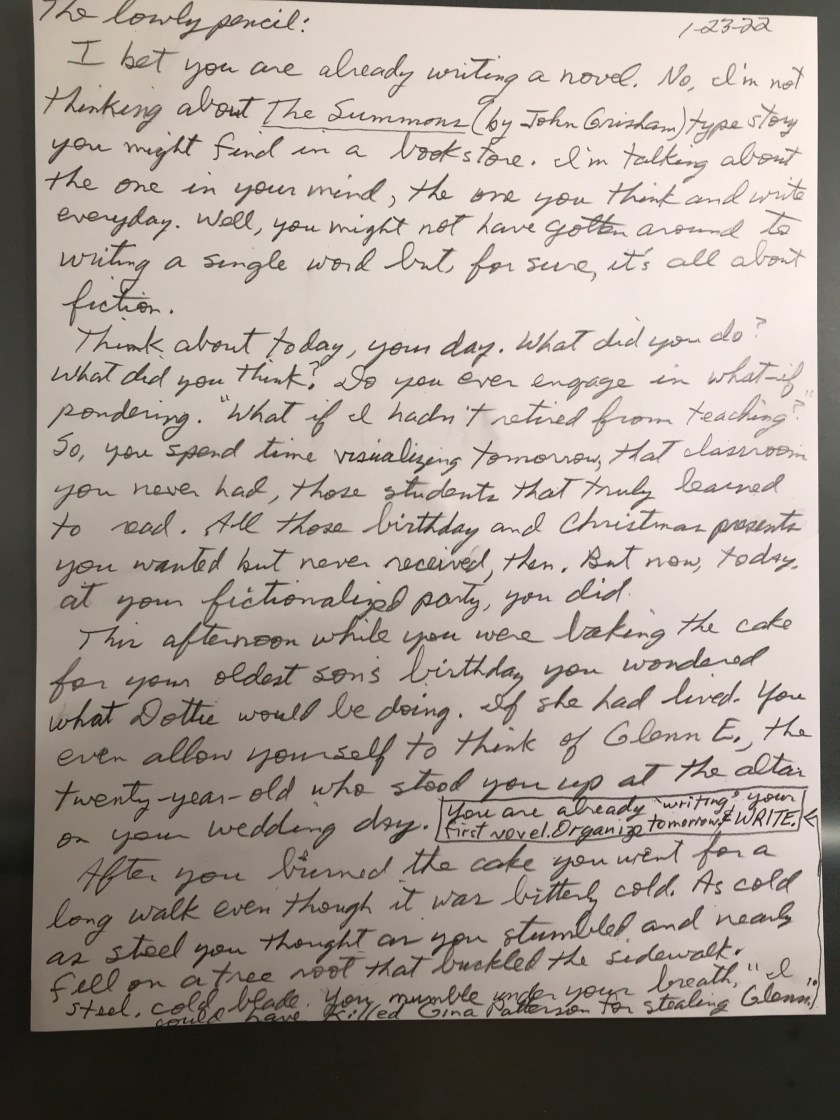 The lowly pencil: 1-23-22
I bet you are already writing a novel. No, I'm not
thinking about The Summons (by John Grisham) type story
you might find in a bookstore. I'm talking about
the one in your mind, the one you think and write
everyday. Well, you might not have gotten around to
writing a single word but, for sure, it's all about
fiction.
Think about today, your day. What did you do?
What did you think? Do you ever engage in what-if
pondering. "What if I hadn't retired from teaching?"
So, you spend time visualizing tomorrow, that classroom
you never had, those students that truly learned
to read. All those birthday and Christmas presents
you wanted but never received, then. But now, today,
at your fictionalized party, you did.
This afternoon while you were baking the cake
for your oldest son's birthday you wondered
what Dottie would be doing. If she had lived. You
even allow yourself to think of Glenn E., the
twenty-year-old who stood you up at the altar
on your wedding day. You are already "writing" your
first novel. Organize tomorrow, & WRITE.
After you burned the cake you went for a
long walk even though it was bitterly cold. As cold
as steel you thought as you stumbled and nearly
fell on a tree root that buckled the sidewalk.
Steel, cold blade. You mumble under your breath, "I
could have killed Gina Patterson for stealing Glenn."